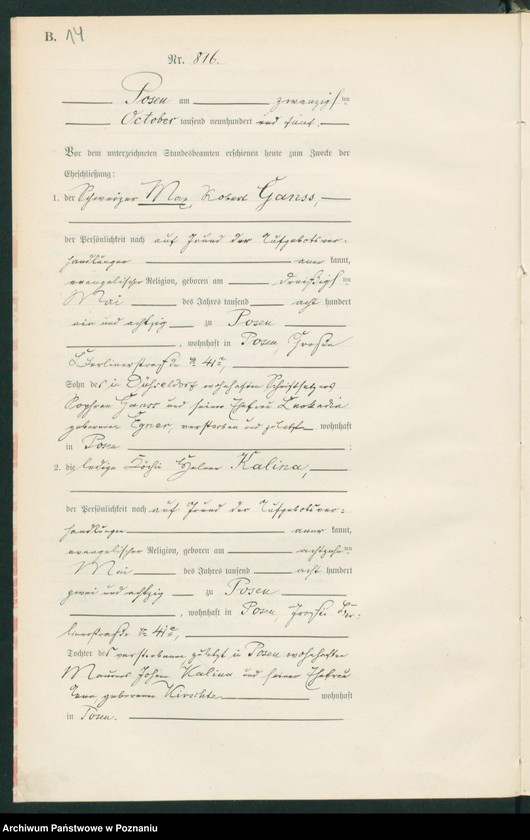 B. 14
Nr. 816.
Posen am zwanzigsten
October tausend neunhundert und fünf.
Vor dem unterzeichneten Standesbeamten erschienen heute zum Zwecke der
Eheschließung:
1. der Schweizer Max Robert Ganss,
der Persönlichkeit nach auf Grund der Aufgebotsver-
handlungen aner kannt,
evangelischer Religion, geboren am dreißigsten
Mai des Jahres tausend acht hundert
ein und achtzig zu Posen
, wohnhaft in Posen, Große
Berlinerstraße No 41a,
Sohn des in Düsseldorf wohnhaften Schriftsetzers
Ganss und seiner Ehefrau Leokadia
geborenen verstorben und zuletzt wohnhaft
in Posen ;
2. die ledige Köchin Helene Kalina,
der Persönlichkeit nach auf Grund der Aufgebotsver-
handlungen aner kannt,
evangelischer Religion, geboren am achtzehnten
Mai des Jahres tausend acht hundert
zwei und achtzig zu Posen
, wohnhaft in Posen, Große Ber-
linerstraße No 41a,
Tochter des verstorbenen zuletzt in Posen wohnhaften
Maurers Johann Kalina und seiner Ehefrau
geborenen wohnhaft
in Posen.
Archiwum Państwowe w Poznaniu